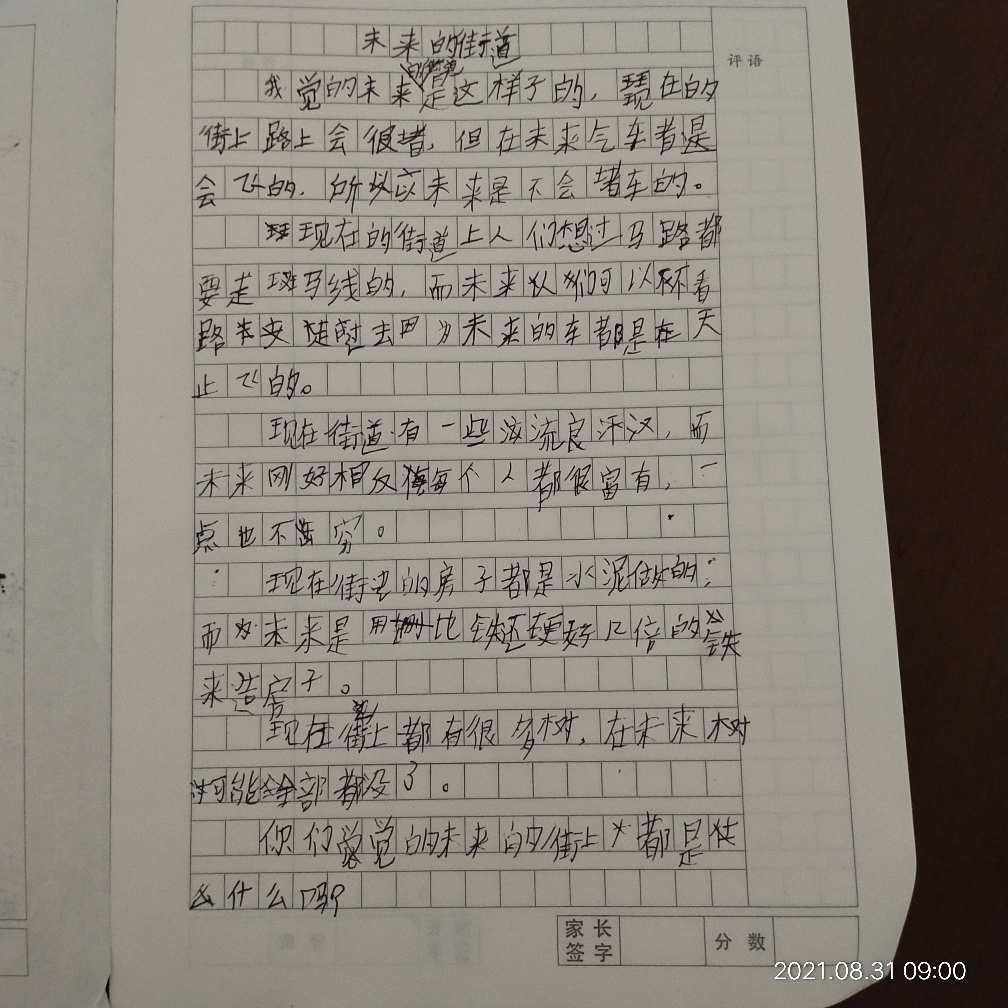 未来的街道
评语
我觉的未来的街道是这样子的，现在的
街上路上会很堵，但在未来气车者是
会飞的，所以以未来是不会堵车的。
现在的街道上人们想过马路都
要走斑马线的，而未来人们可以不看
路去未来的车都是在天
上飞的。
现在街道有一些流良汗汉，而
未来刚好相反每个人都很富有，一
点也不穷。
现在街道的房子都是水泥做的，
而未来是用比铁还硬好几倍的铁
来造房子。
现在街上都有很多树，在未来树
可能全部都没了。
你们觉的未来的街上都是
什么吗？
家长
签字
分数
2021.08.31 09:00